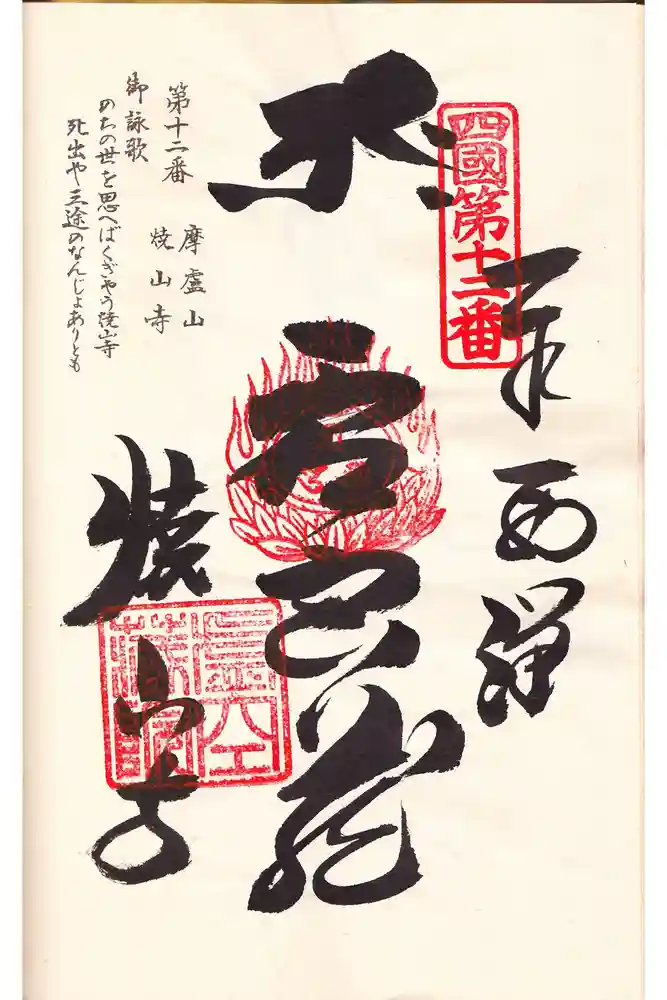 四國第十二番
奉
虚空蔵
焼山寺
第十二番 摩盧山
焼山寺
御詠歌
のちの世を思へばくぎやう焼山寺
死出や三途のなんじよありとも